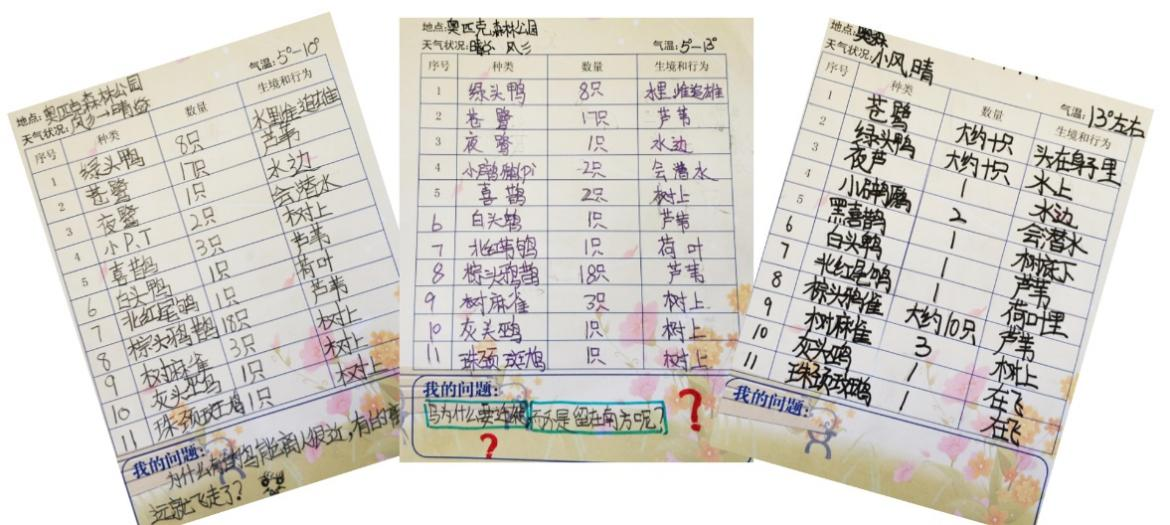 地点:奥匹克森林公园
天气状况:风 → 晴 气温:5°-10°
序号 种类 数量 生境和行为
1 绿头鸭 8只 水里雌追雄
2 苍鹭 17只 芦苇
3 夜鹭 1只 水边
4 小P.T 2只 会潜水
5 喜鹊 3只 树上
6 白头鸭 1只 芦苇
7 北红尾鸲 1只 荷叶
8 棕头鸦鹊 18只 芦苇
9 树麻雀 3只 树上
10 灰头鸭 1只 树上
11 珠颈斑鸠 1只 树上
我的问题:
为什么有的鸟能离人很近,有的
远就飞走了?
地点:奥匹克森林公园
天气状况:晴 风 气温:5-13°
序号 种类 数量 生境和行为
1 绿头鸭 8只 水里,雌追雄
2 苍鹭 17只 芦苇
3 夜鹭 1只 水边
4 小䴙䴘pi 2只 会潜水
5 喜鹊 2只 树上
6 白头鹎 1只 芦苇
7 北红 1只 荷叶
8 棕头鸦鹊 18只 芦苇
9 树麻雀 3只 树上
10 灰头 1只 树上
11 珠颈斑鸠 1只 树上
我的问题:
鸟为什么要迁徙而不是留在南方呢?
? ?
地点:奥森
天气状况:小风,晴 气温:13°左右
序号 种类 数量 生境和行为
1 苍鹭 大约十只 头在身子里
2 绿头鸭 大约十只 水上
3 夜芦 1 水边
4 小䴙䴘 2 会潜水
5 黑喜鹊 1 树底下
6 白头鸭 1 芦苇
7 北红尾鸲 1 荷叶里
8 棕头鸦雀 大约10只 芦苇
9 树麻雀 3 树上
10 灰头 1 在飞
11 珠颈斑鸠 1 在飞
我的问题: